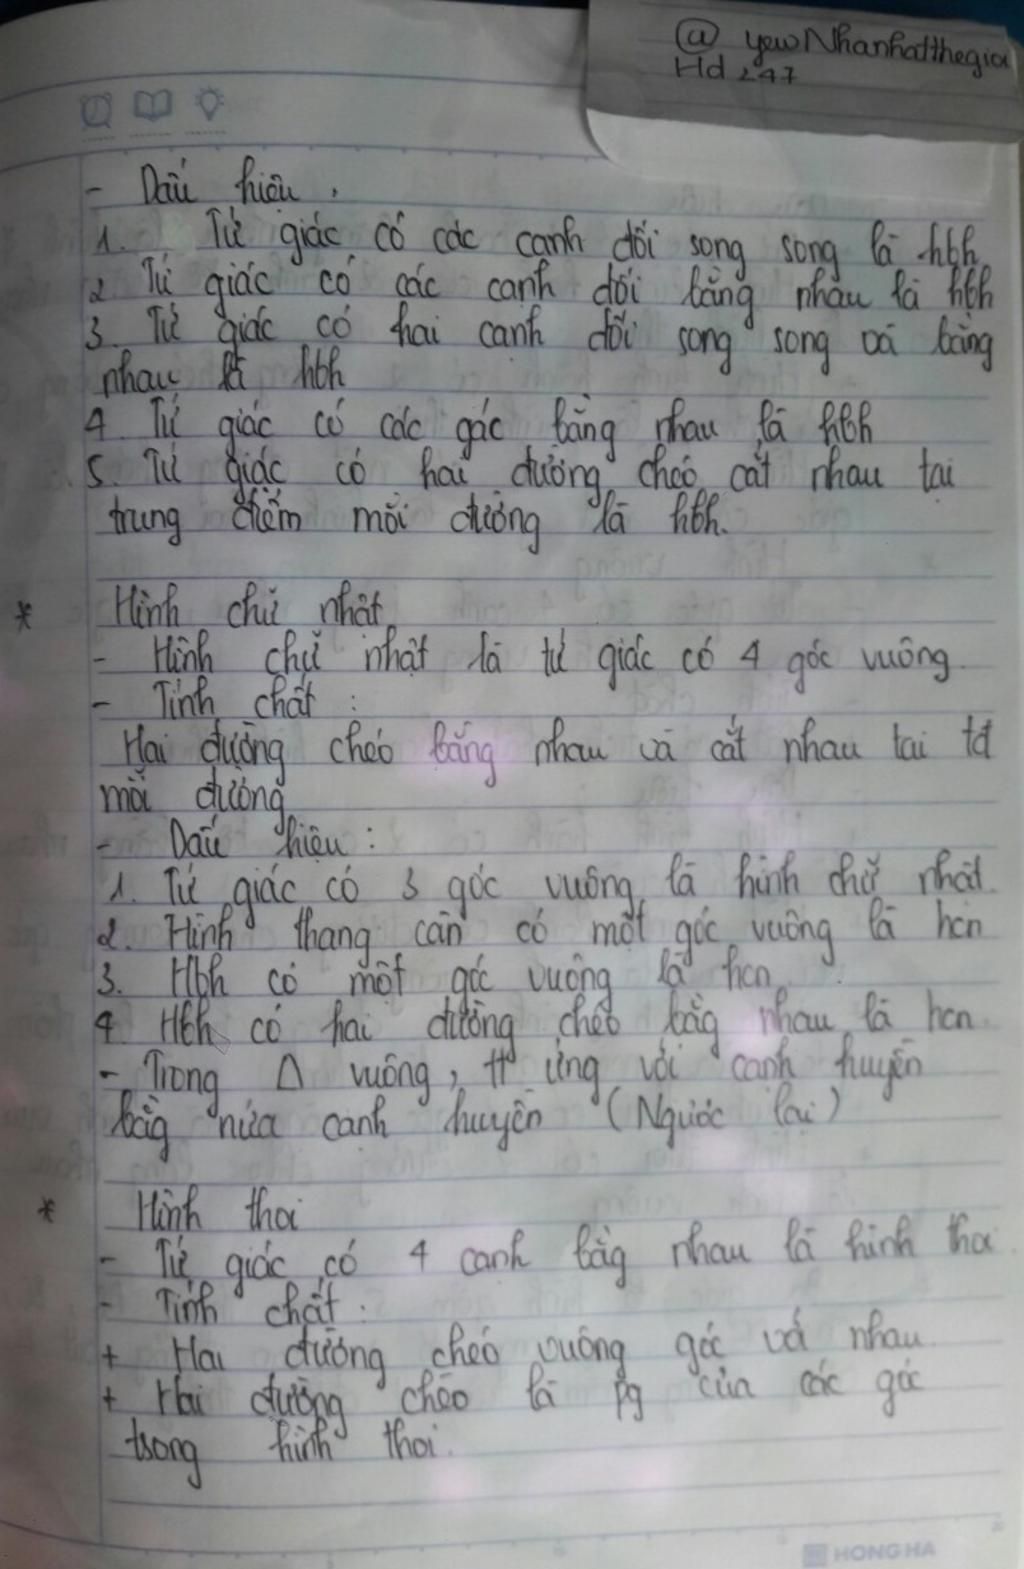 @ yewNhanhatthegioi
Hd 247
- Dấu hiệu,
1. Tứ giác có các cạnh đối song song là hbh
2. Tứ giác có các cạnh đối bằng nhau là hbh
3. Tứ giác có hai cạnh đối song song và bằng
nhau là hbh
4. Tứ giác có các góc bằng nhau là hbh
5. Tứ giác có hai đường chéo cắt nhau tại
trung điểm mỗi đường là hbh.
* Hình chữ nhật
- Hình chữ nhật là tứ giác có 4 góc vuông.
- Tính chất :
Hai đường chéo bằng nhau và cắt nhau tại tđ
mỗi đường
- Dấu hiệu :
1. Tứ giác có 3 góc vuông là hình chữ nhật.
2. Hình thang cân có một góc vuông là hcn
3. Hbh có một góc vuông là hcn.
4. Hbh có hai đường chéo bằg nhau là hcn.
- Trong Δ vuông, tt ứng với cạnh huyền
bằg nửa cạnh huyền (Ngược lại)
* Hình thoi
- Tứ giác có 4 cạnh bằg nhau là hình thoi.
- Tính chất :
+ Hai đường chéo vuông góc với nhau.
+ Hai đường chéo là pg của các góc
trong hình thoi.
HONG HA